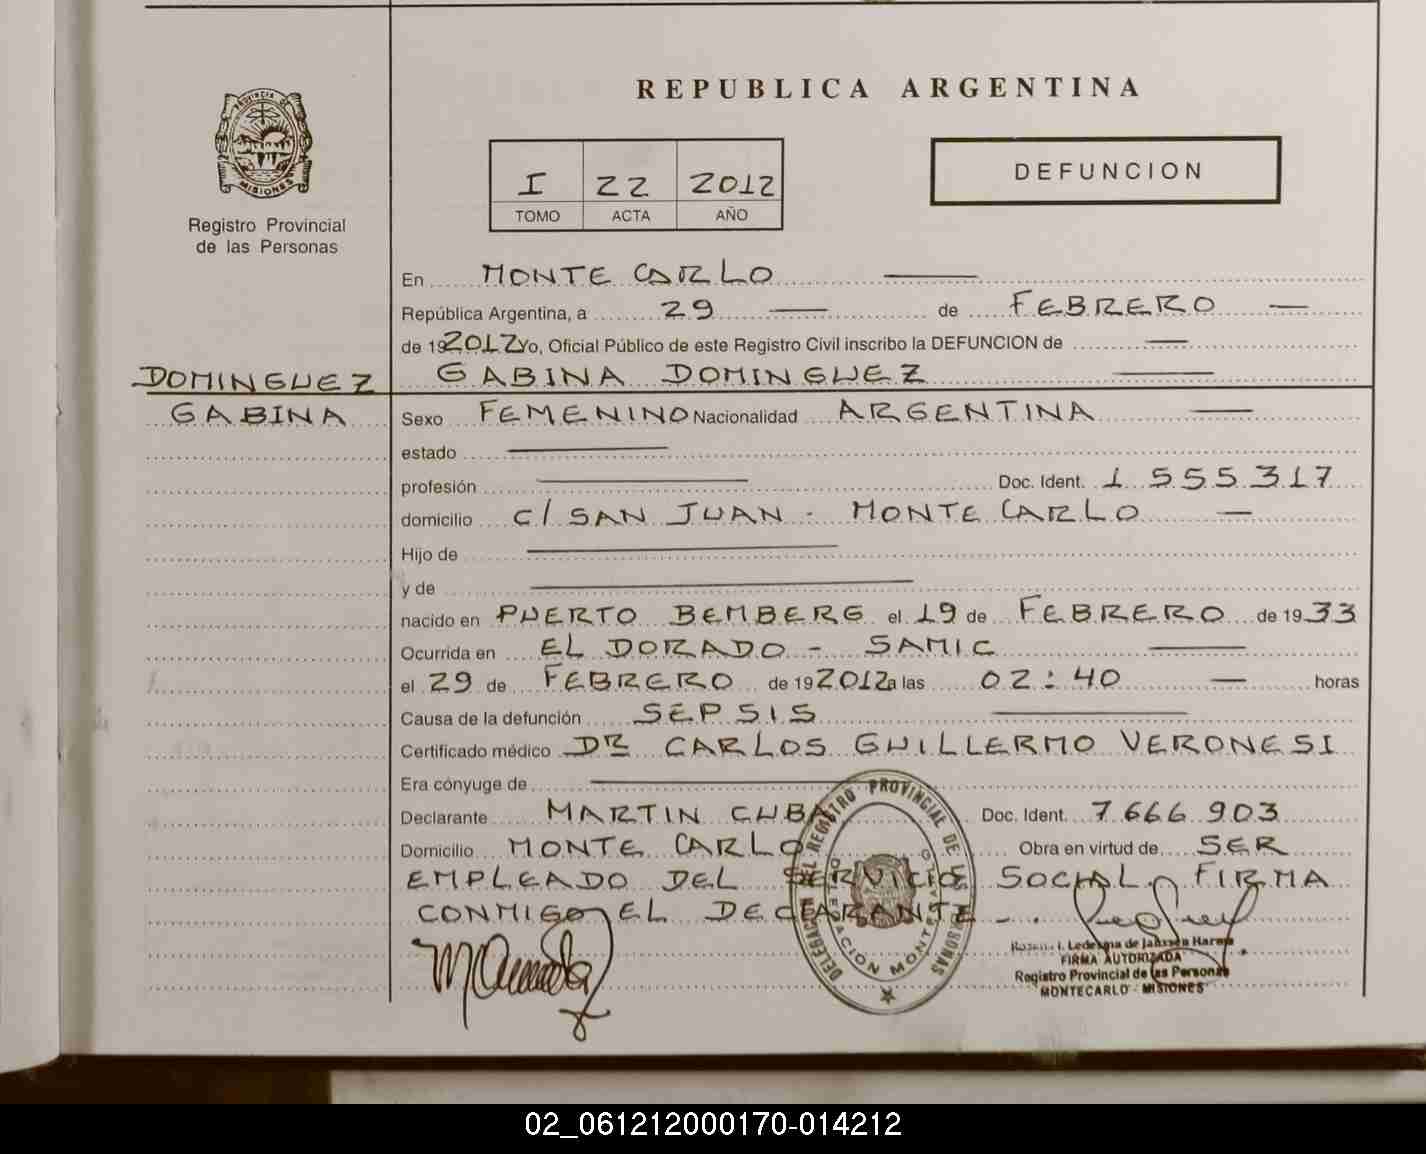 REPUBLICA ARGENTINA
PROVINCIA DE
MISIONES
Registro Provincial
de las Personas
I 22 2012
TOMO ACTA AÑO
DEFUNCION
En MONTE CARLO
República Argentina, a 29 de FEBRERO
de 192012 Yo, Oficial Público de este Registro Civil inscribo la DEFUNCION de
DOMINGUEZ GABINA DOMINGUEZ
GABINA Sexo FEMENINO Nacionalidad ARGENTINA
estado
profesión Doc. Ident. 1 555317
domicilio C/ SAN JUAN - MONTE CARLO
Hijo de
y de
nacido en PUERTO BEMBERG el 19 de FEBRERO de 1933
Ocurrida en EL DORADO - SAMIC
el 29 de FEBRERO de 192012 a las 02:40 horas
Causa de la defunción SEPSIS
Certificado médico DR CARLOS GUILLERMO VERONESI
Era cónyuge de
Declarante MARTIN CUBA Doc. Ident. 7 666 903
Domicilio MONTE CARLO Obra en virtud de SER
EMPLEADO DEL SERVICIO SOCIAL. FIRMA
CONMIGO EL DECLARANTE - .
DELEGACION DEL REGISTRO PROVINCIAL DE LAS PERSONAS
I. Ledesma de Janssen Harms
FIRMA AUTORIZADA
Registro Provincial de las Personas
MONTECARLO - MISIONES
02_061212000170-014212